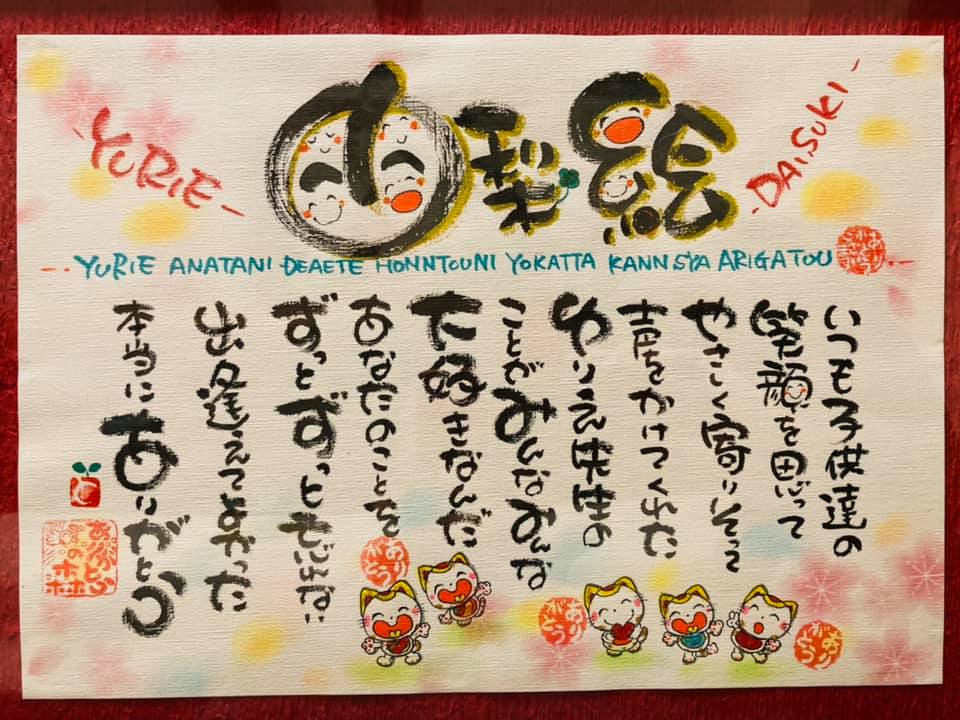 YURIE
由梨絵
DAISUKI
YURIE ANATANI DEAETE HONNTOUNI YOKATTA KANNSYA ARIGATOU
いつも子供達の
笑顔を思って
やさしく寄りそって
声をかけてくれた
ゆりえ先生の
ことがみんなみんな
大好きなんだ
あなたのことを
ずっとずっと忘れない
出逢えてよかった
本当にありがとう
ありがとうの森